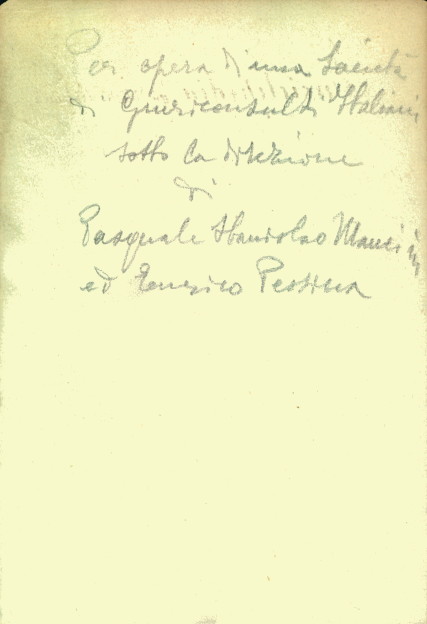 Per opera di una Società
di Giureconsulti Italiani
sotto la direzione
di
Pasquale Stanislao Mancini
ed Enrico Pessina